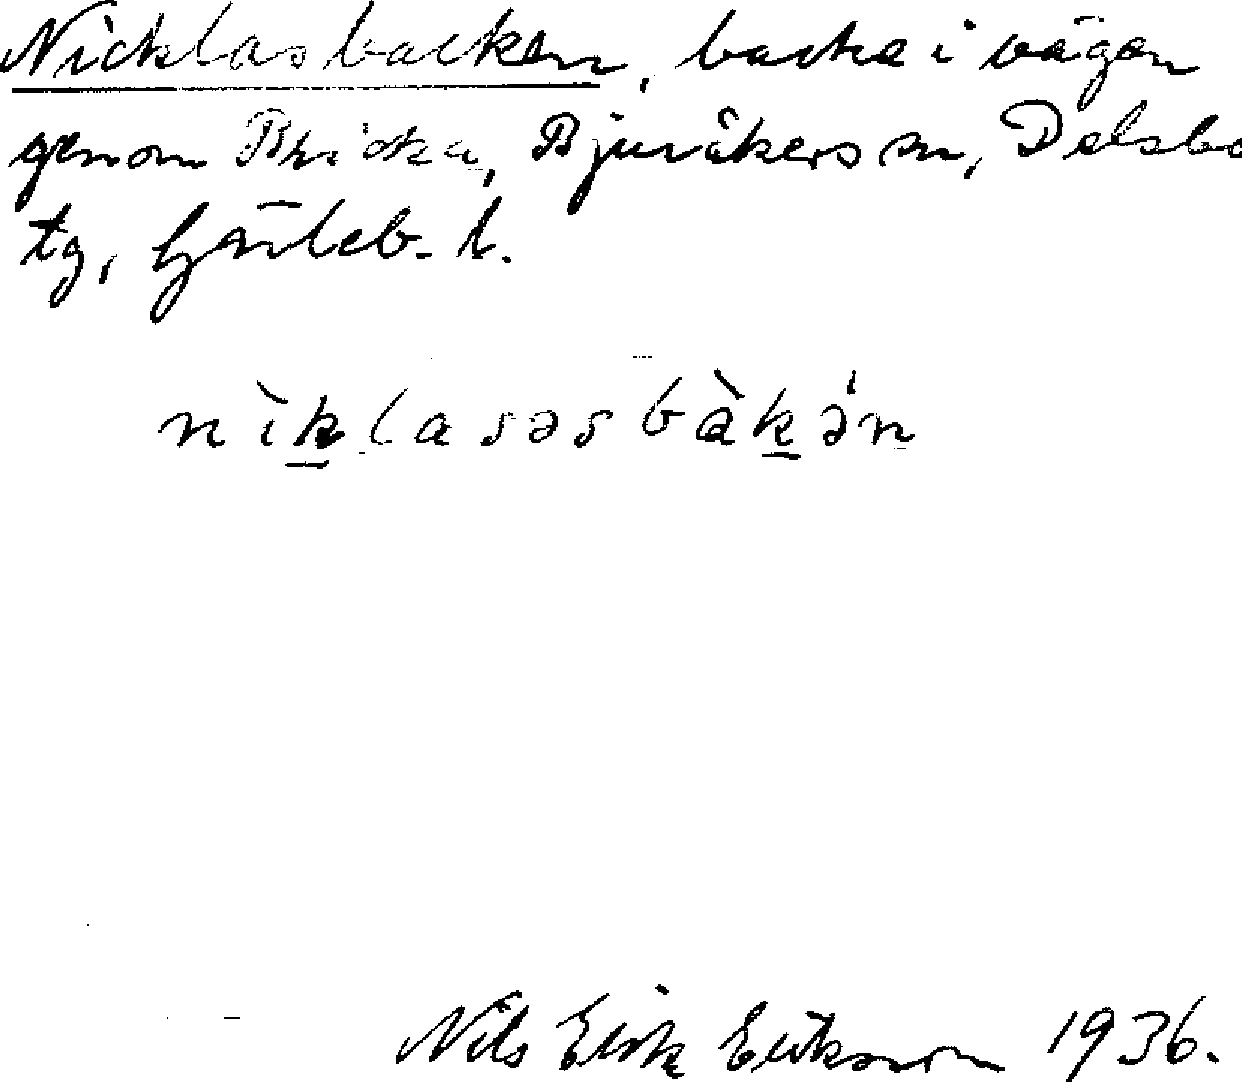 Nicklasbacken, backe i vägen
genom Bricka, Bjuråkers sn, Delsbo
tg, Gävleb. l.
nìk̲lasəsbàk̲ə́n
Nils Erik Eriksson 1936.